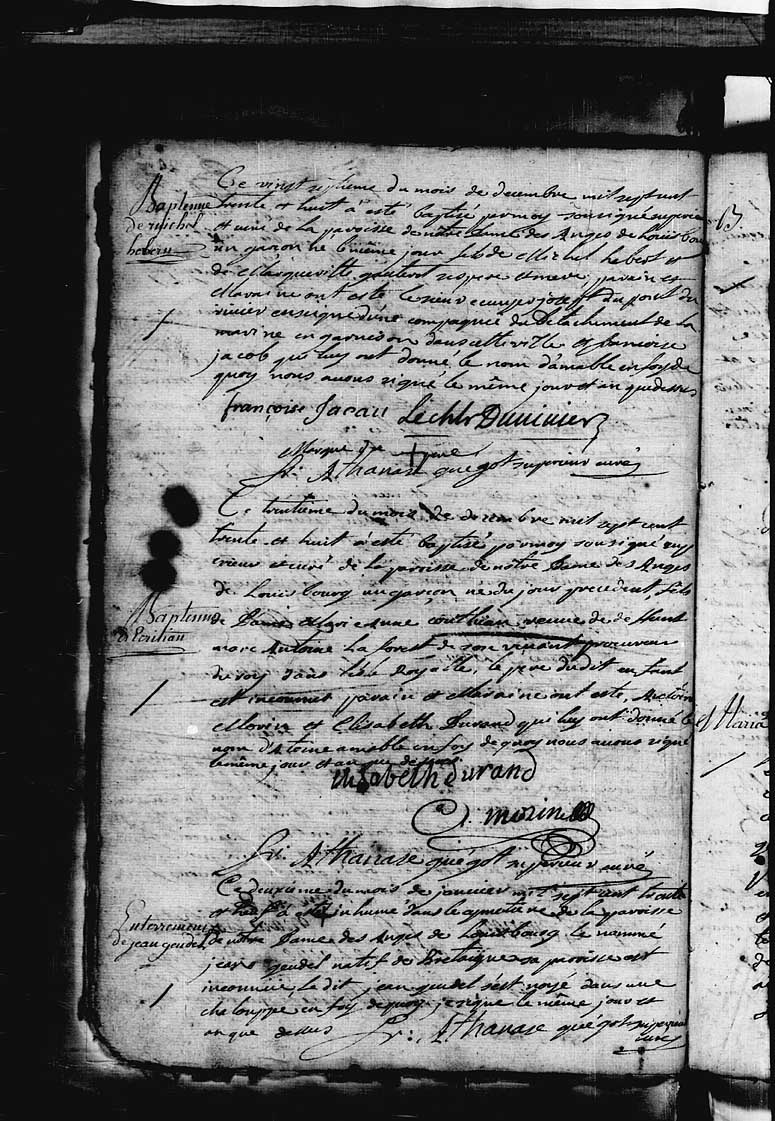 Baptemme
de michel
hebert
Ce vingt septieme du mois de decembre mil sept cent
trente et huit à esté baptisé par moy sousigné superieur
et curé de la paroisse de notre dame des Anges de Louisbourg
un garçon ne le même jour fils de Michel hebert et
de ses pere et mere, parain et
Maraine ont esté le sieur joseph du pont du
vivier enseigne d'une compagnie du Detachement de la
marine en garnison dans cette ville et francoise
jacob qui luy ont donné le nom d'amable en foy de
quoy nous avons signé le même jour et an que dessus
françoise Jacau Lechlr Duvivier
Marque du pere
fr: Athanase quégot superieur curé
Ce trentieme du mois de decembre mil sept cent
trente et huit à esté baptisé par moy sousigné sup
erieur et curé de la paroisse de notre Dame des Anges
de Louisbourg un garçon né du jour precedent, fils
Baptemme
de Dame Marie Anne veuve de
marc Antoine La forest de son vivant procureur
du roy dans l'isle Royalle, le pere dudit enfant
est inconnu parain et Maraine ont esté, Antoine
Morin et Elisabeth Durand qui luy ont donné le
nom d'Antoine amable en foy de quoy nous avons signé
le même jour et an que dessus
elisabeth durand
morin
fr: Athanase quégot superieur curé
Ce deuxieme du mois de janvier mil sept cent trente
et neuf à esté inhumé dans le cymetiere de la paroisse
Enterrement
de jean geudel
de notre Dame des Anges de Louisbourg le nommé
jean geudel natif de Bretaigne sa paroisse est
inconnue, le dit jean geudel s'est noyé dans une
chalouppe en foy de quoy j'ay signé le même jour et
an que dessus fr: Athanase quégot superieur
curé
13
Maria